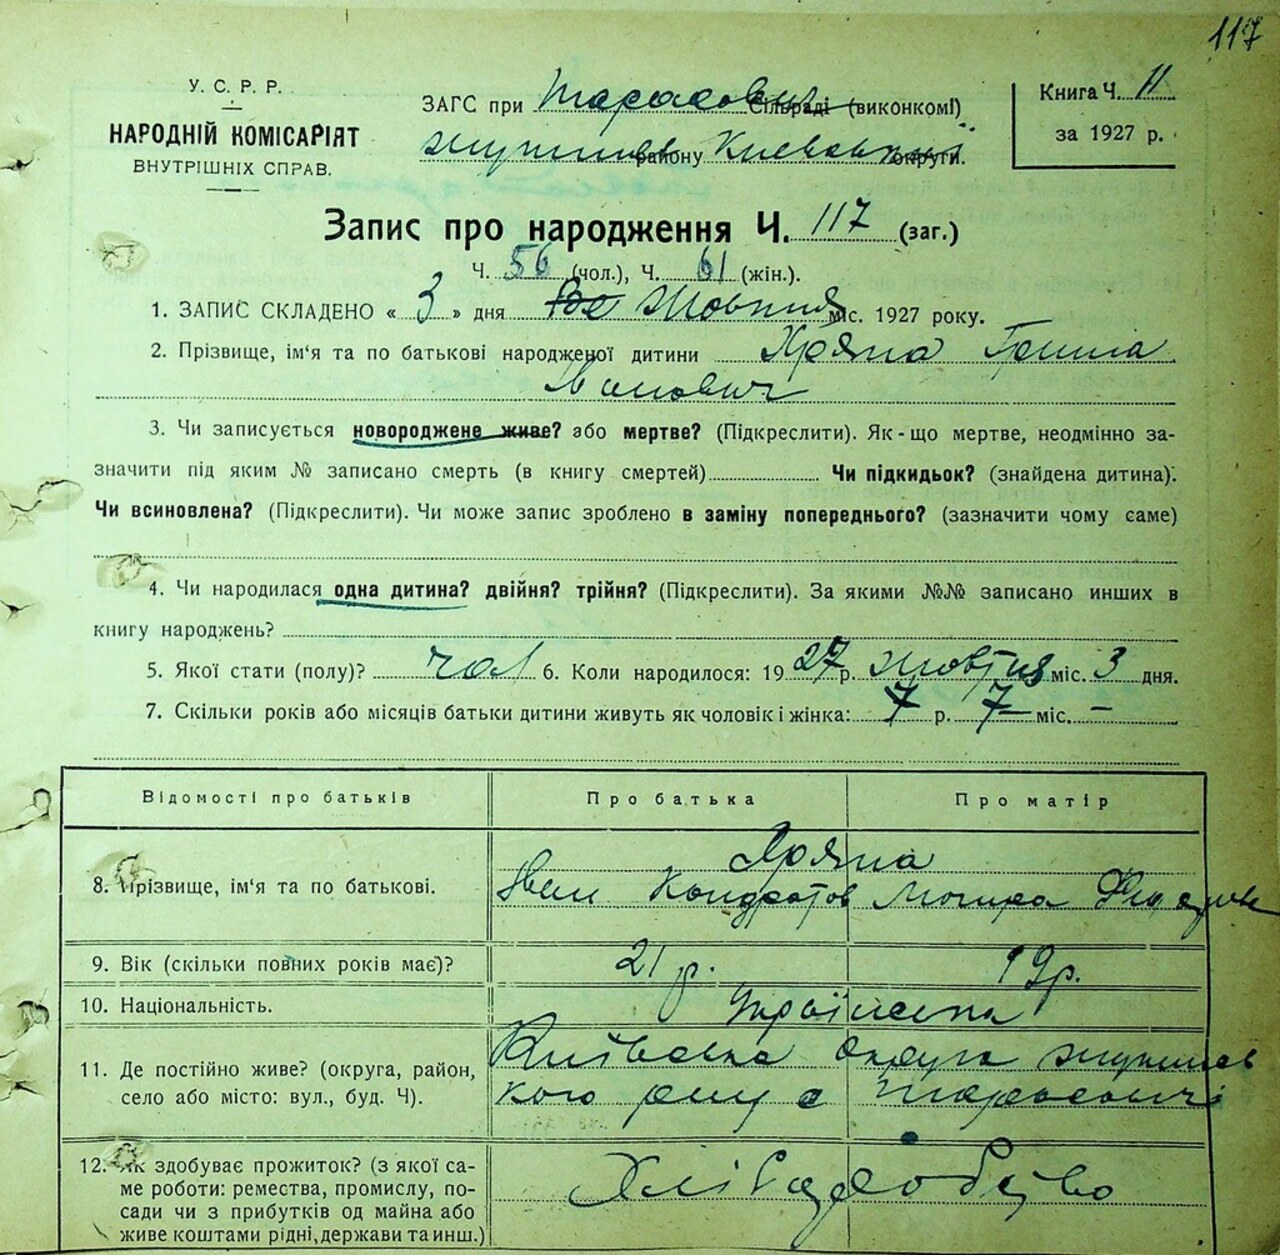 117
У. С. Р. Р.
НАРОДНІЙ КОМІСАРІЯТ
ВНУТРІШНІХ СПРАВ.
ЗАГС при Сільраді (виконкомі)
району округи.
Книга Ч. 11
за 1927 р.
Запис про народження Ч. 117 (заг.)
Ч. 56 (чол.), Ч. 61 (жін.).
1. ЗАПИС СКЛАДЕНО « 3 » дня Жовтня міс. 1927 року.
2. Прізвище, ім'я та по батькові народженої дитини Хряпа Гриша
Іванович
3. Чи записується новороджене живе? або мертве? (Підкреслити). Як-що мертве, неодмінно за-
значити під яким № записано смерть (в книгу смертей) Чи підкидьок? (знайдена дитина).
Чи всиновлена? (Підкреслити). Чи може запис зроблено в заміну попереднього? (зазначити чому саме)
4. Чи народилася одна дитина? двійня? трійня? (Підкреслити). За якими №№ записано инших в
книгу народжень?
5. Якої стати (полу)? чол 6. Коли народилося: 1927 р. жовтня міс. 3 дня.
7. Скільки років або місяців батьки дитини живуть як чоловік і жінка: р. міс. –
Відомості про батьків Про батька Про матір
Хряпа
8. Прізвище, ім'я та по батькові. Іван Кондратов
9. Вік (скільки повних років має)? 21 р. 19 р.
10. Національність. Українська
11. Де постійно живе? (округа, район, Київська округа
село або місто: вул., буд. Ч). кого с
12. Як здобуває прожиток? (з якої са- Хліборобство
ме роботи: ремества, промислу, по-
сади чи з прибутків од майна або
живе коштами рідні, держави та инш.)